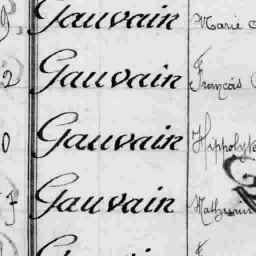 9 Gauvain Marie
2 Gauvain François
0 Gauvain Hippolyte
7 Gauvain Mathurin